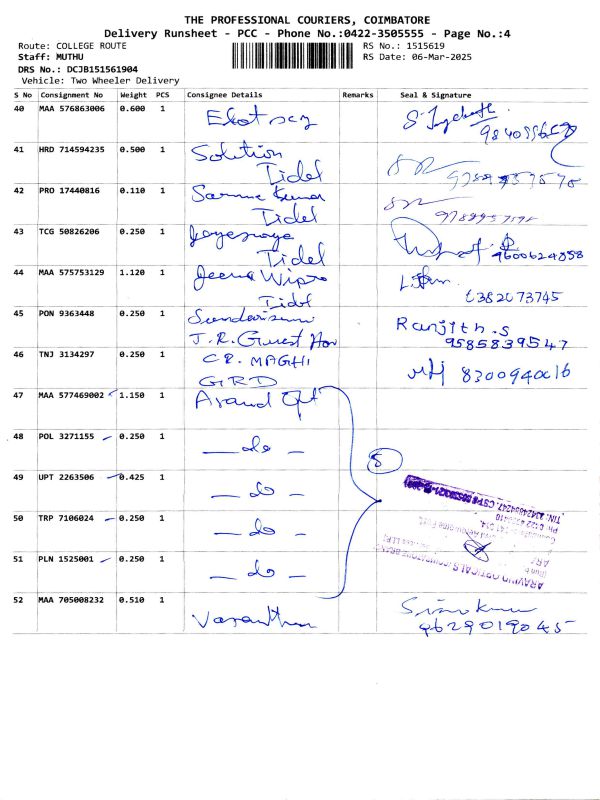 THE PROFESSIONAL COURIERS, COIMBATORE
Delivery Runsheet - PCC - Phone No.:0422-3505555 - Page No.:4
Route: COLLEGE ROUTE RS No.: 1515619
Staff: MUTHU RS Date: 06-Mar-2025
DRS No.: DCJB151561904
Vehicle: Two Wheeler Delivery
S No Consignment No Weight PCS Consignee Details Remarks Seal & Signature
40 MAA 576863006 0.600 1
41 HRD 714594235 0.500 1 Solution
Tidel
42 PRO 17440816 0.110 1 Kumar
Tidel
43 TCG 50826206 0.250 1
Tidel 9600624858
44 MAA 575753129 1.120 1 Jeena Wipro
Tidel 6382073745
45 PON 9363448 0.250 1 Ranjith.S
J.R. Guest 9585839547
46 TNJ 3134297 0.250 1 CR. MAGHI
GRD 8300940016
47 MAA 577469002 1.150 1 Aravind Opt
48 POL 3271155 0.250 1 — do —
5
49 UPT 2263506 0.425 1 — do —
50 TRP 7106024 0.250 1 — do —
51 PLN 1525001 0.250 1 — do —
ARAVIND OPTICALS
52 MAA 705008232 0.510 1 Vasantha
9629019045